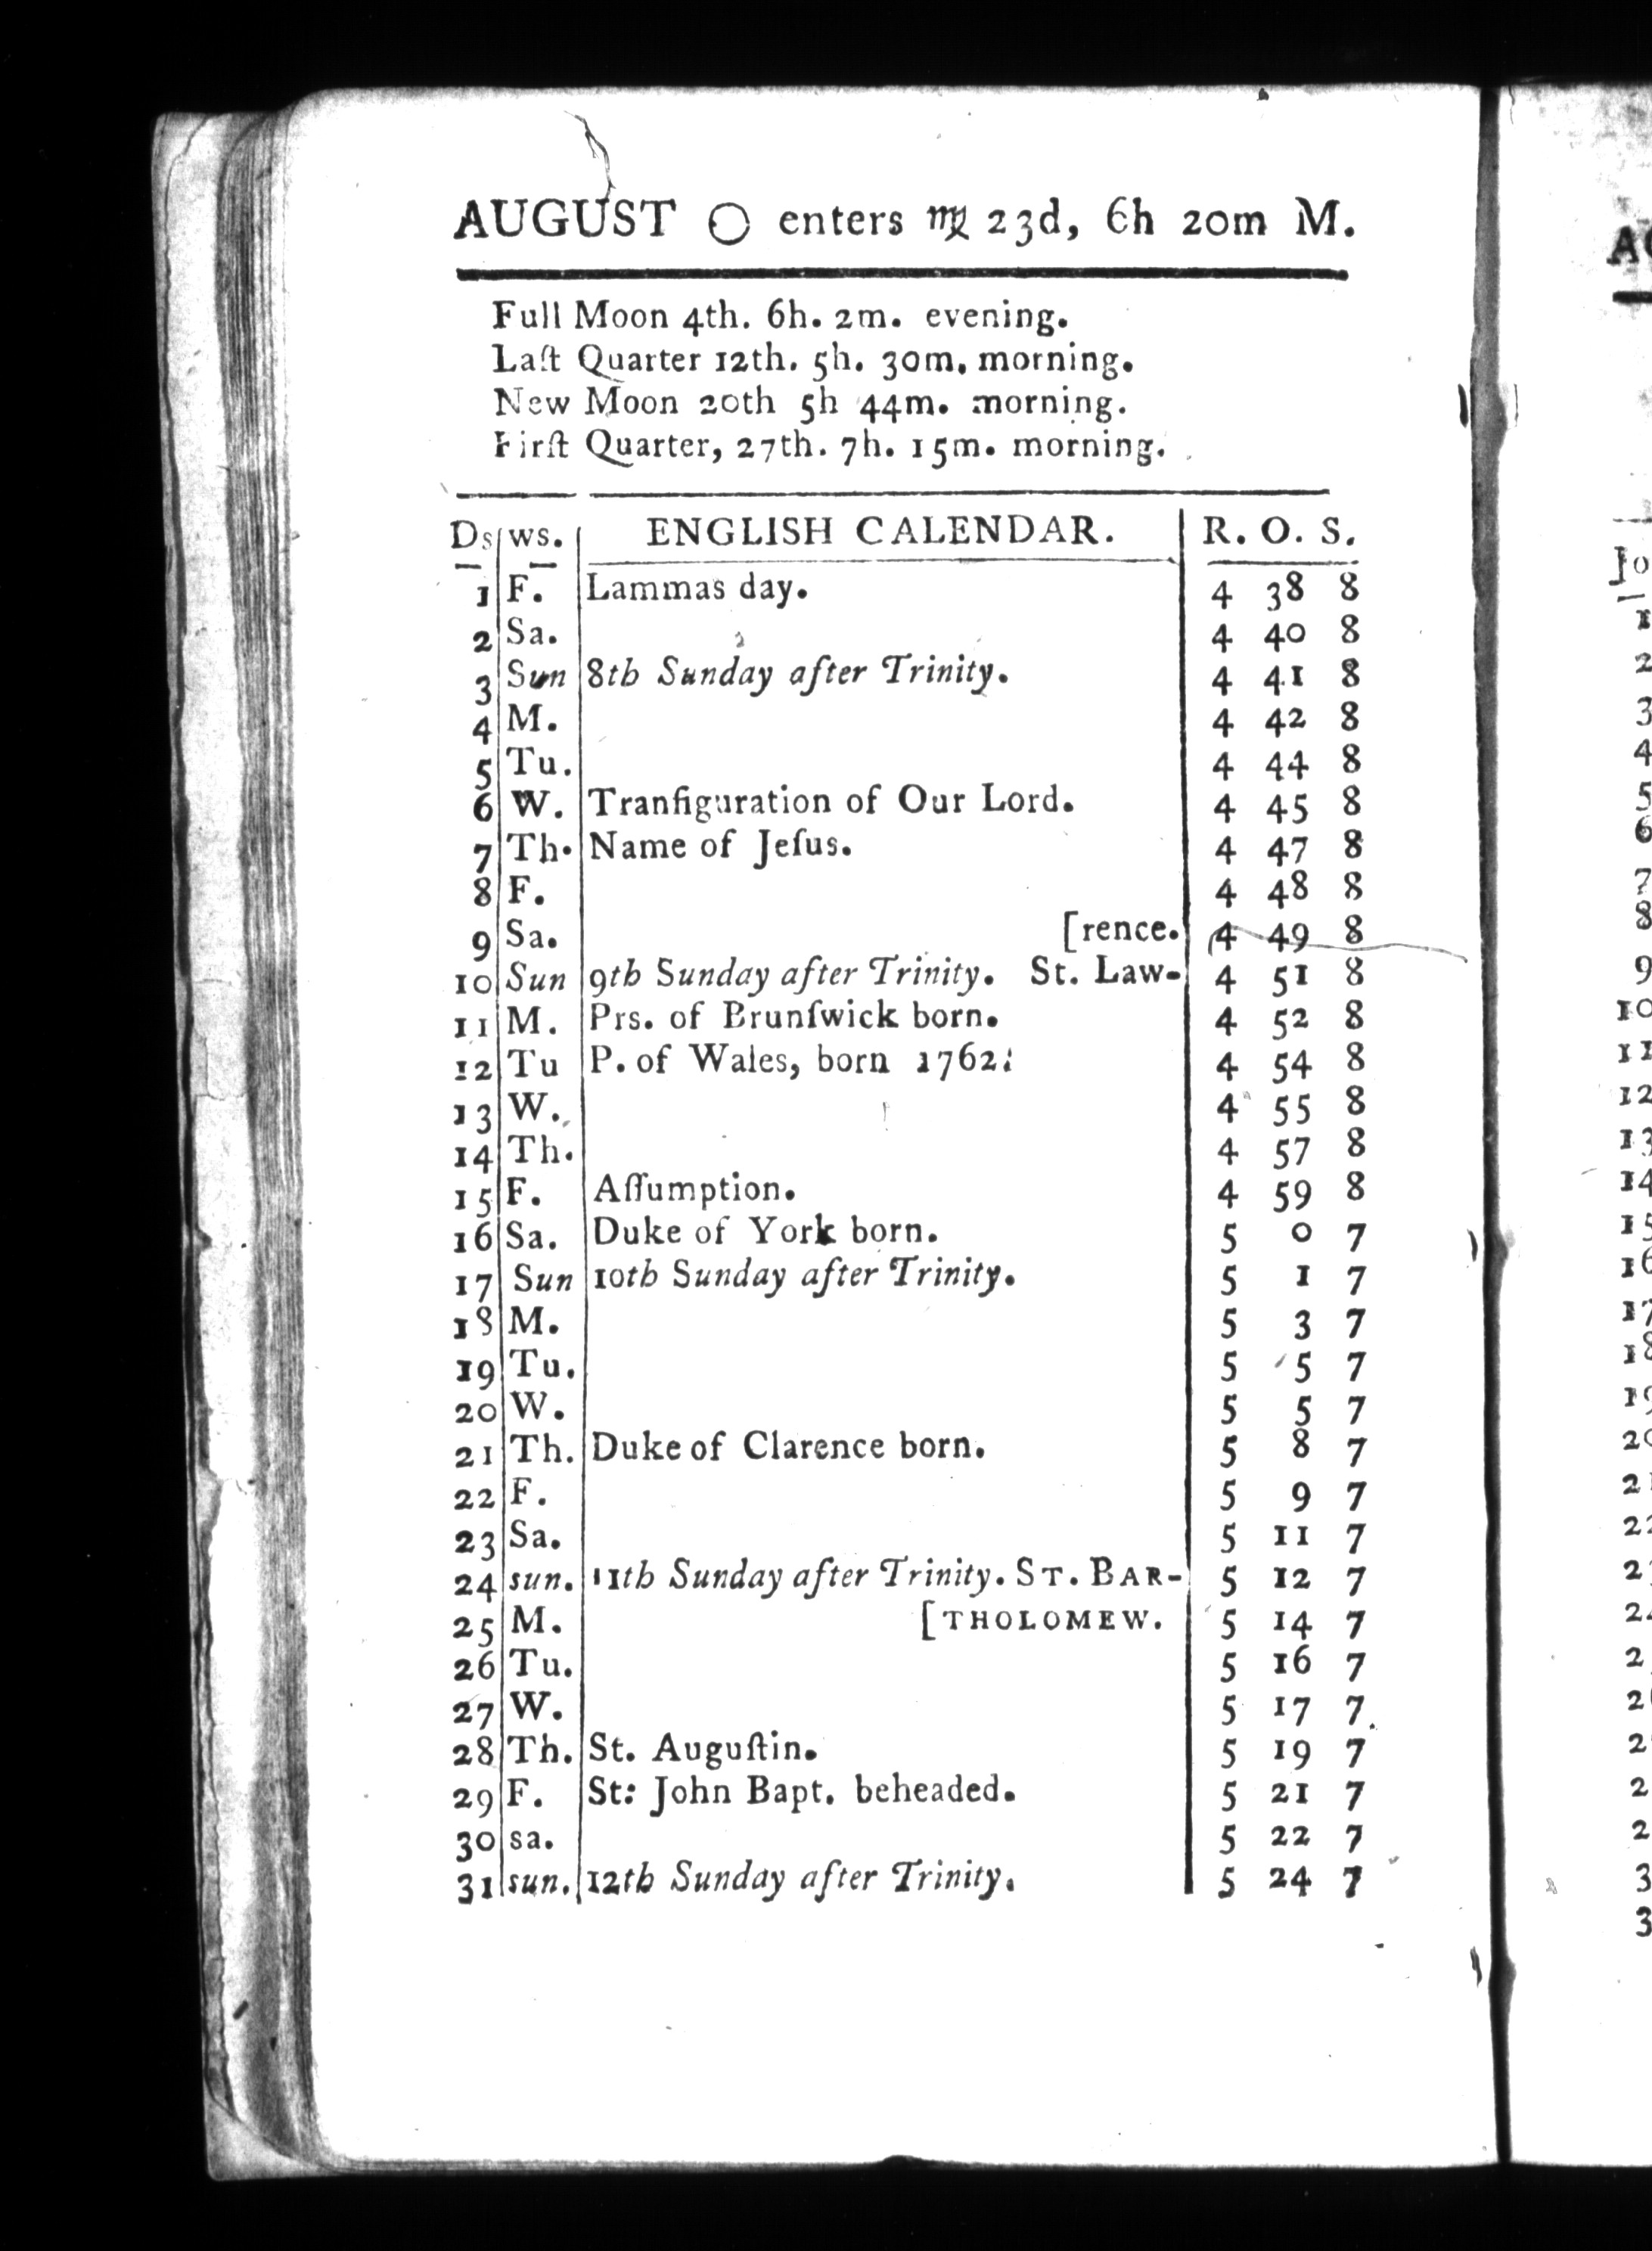 AUGUST ◯ enters ♍ 23d, 6h 20m M.
Full Moon 4th. 6h. 2m. evening.
Laſt Quarter 12th. 5h. 30m. morning.
New Moon 20th 5h 44m. morning.
Firſt Quarter, 27th. 7h. 15m. morning.
Ds ws. ENGLISH CALENDAR. R. O. S.
1 F. Lammas day. 4 38 8
2 Sa. 4 40 8
3 Sun 8th Sunday after Trinity. 4 41 8
4 M. 4 42 8
5 Tu. 4 44 8
6 W. Tranſiguration of Our Lord. 4 45 8
7 Th. Name of Jeſus. 4 47 8
8 F. 4 48 8
9 Sa. [rence. 4 49 8
10 Sun 9th Sunday after Trinity. St. Law- 4 51 8
11 M. Prs. of Brunſwick born. 4 52 8
12 Tu P. of Wales, born 1762: 4 54 8
13 W. 4 55 8
14 Th. 4 57 8
15 F. Aſſumption. 4 59 8
16 Sa. Duke of York born. 5 0 7
17 Sun 10th Sunday after Trinity. 5 1 7
18 M. 5 3 7
19 Tu. 5 5 7
20 W. 5 5 7
21 Th. Duke of Clarence born. 5 8 7
22 F. 5 9 7
23 Sa. 5 11 7
24 sun. 11th Sunday after Trinity. ST. BAR- 5 12 7
25 M. [THOLOMEW. 5 14 7
26 Tu. 5 16 7
27 W. 5 17 7
28 Th. St. Auguſtin. 5 19 7
29 F. St: John Bapt. beheaded. 5 21 7
30 sa. 5 22 7
31 sun. 12th Sunday after Trinity. 5 24 7